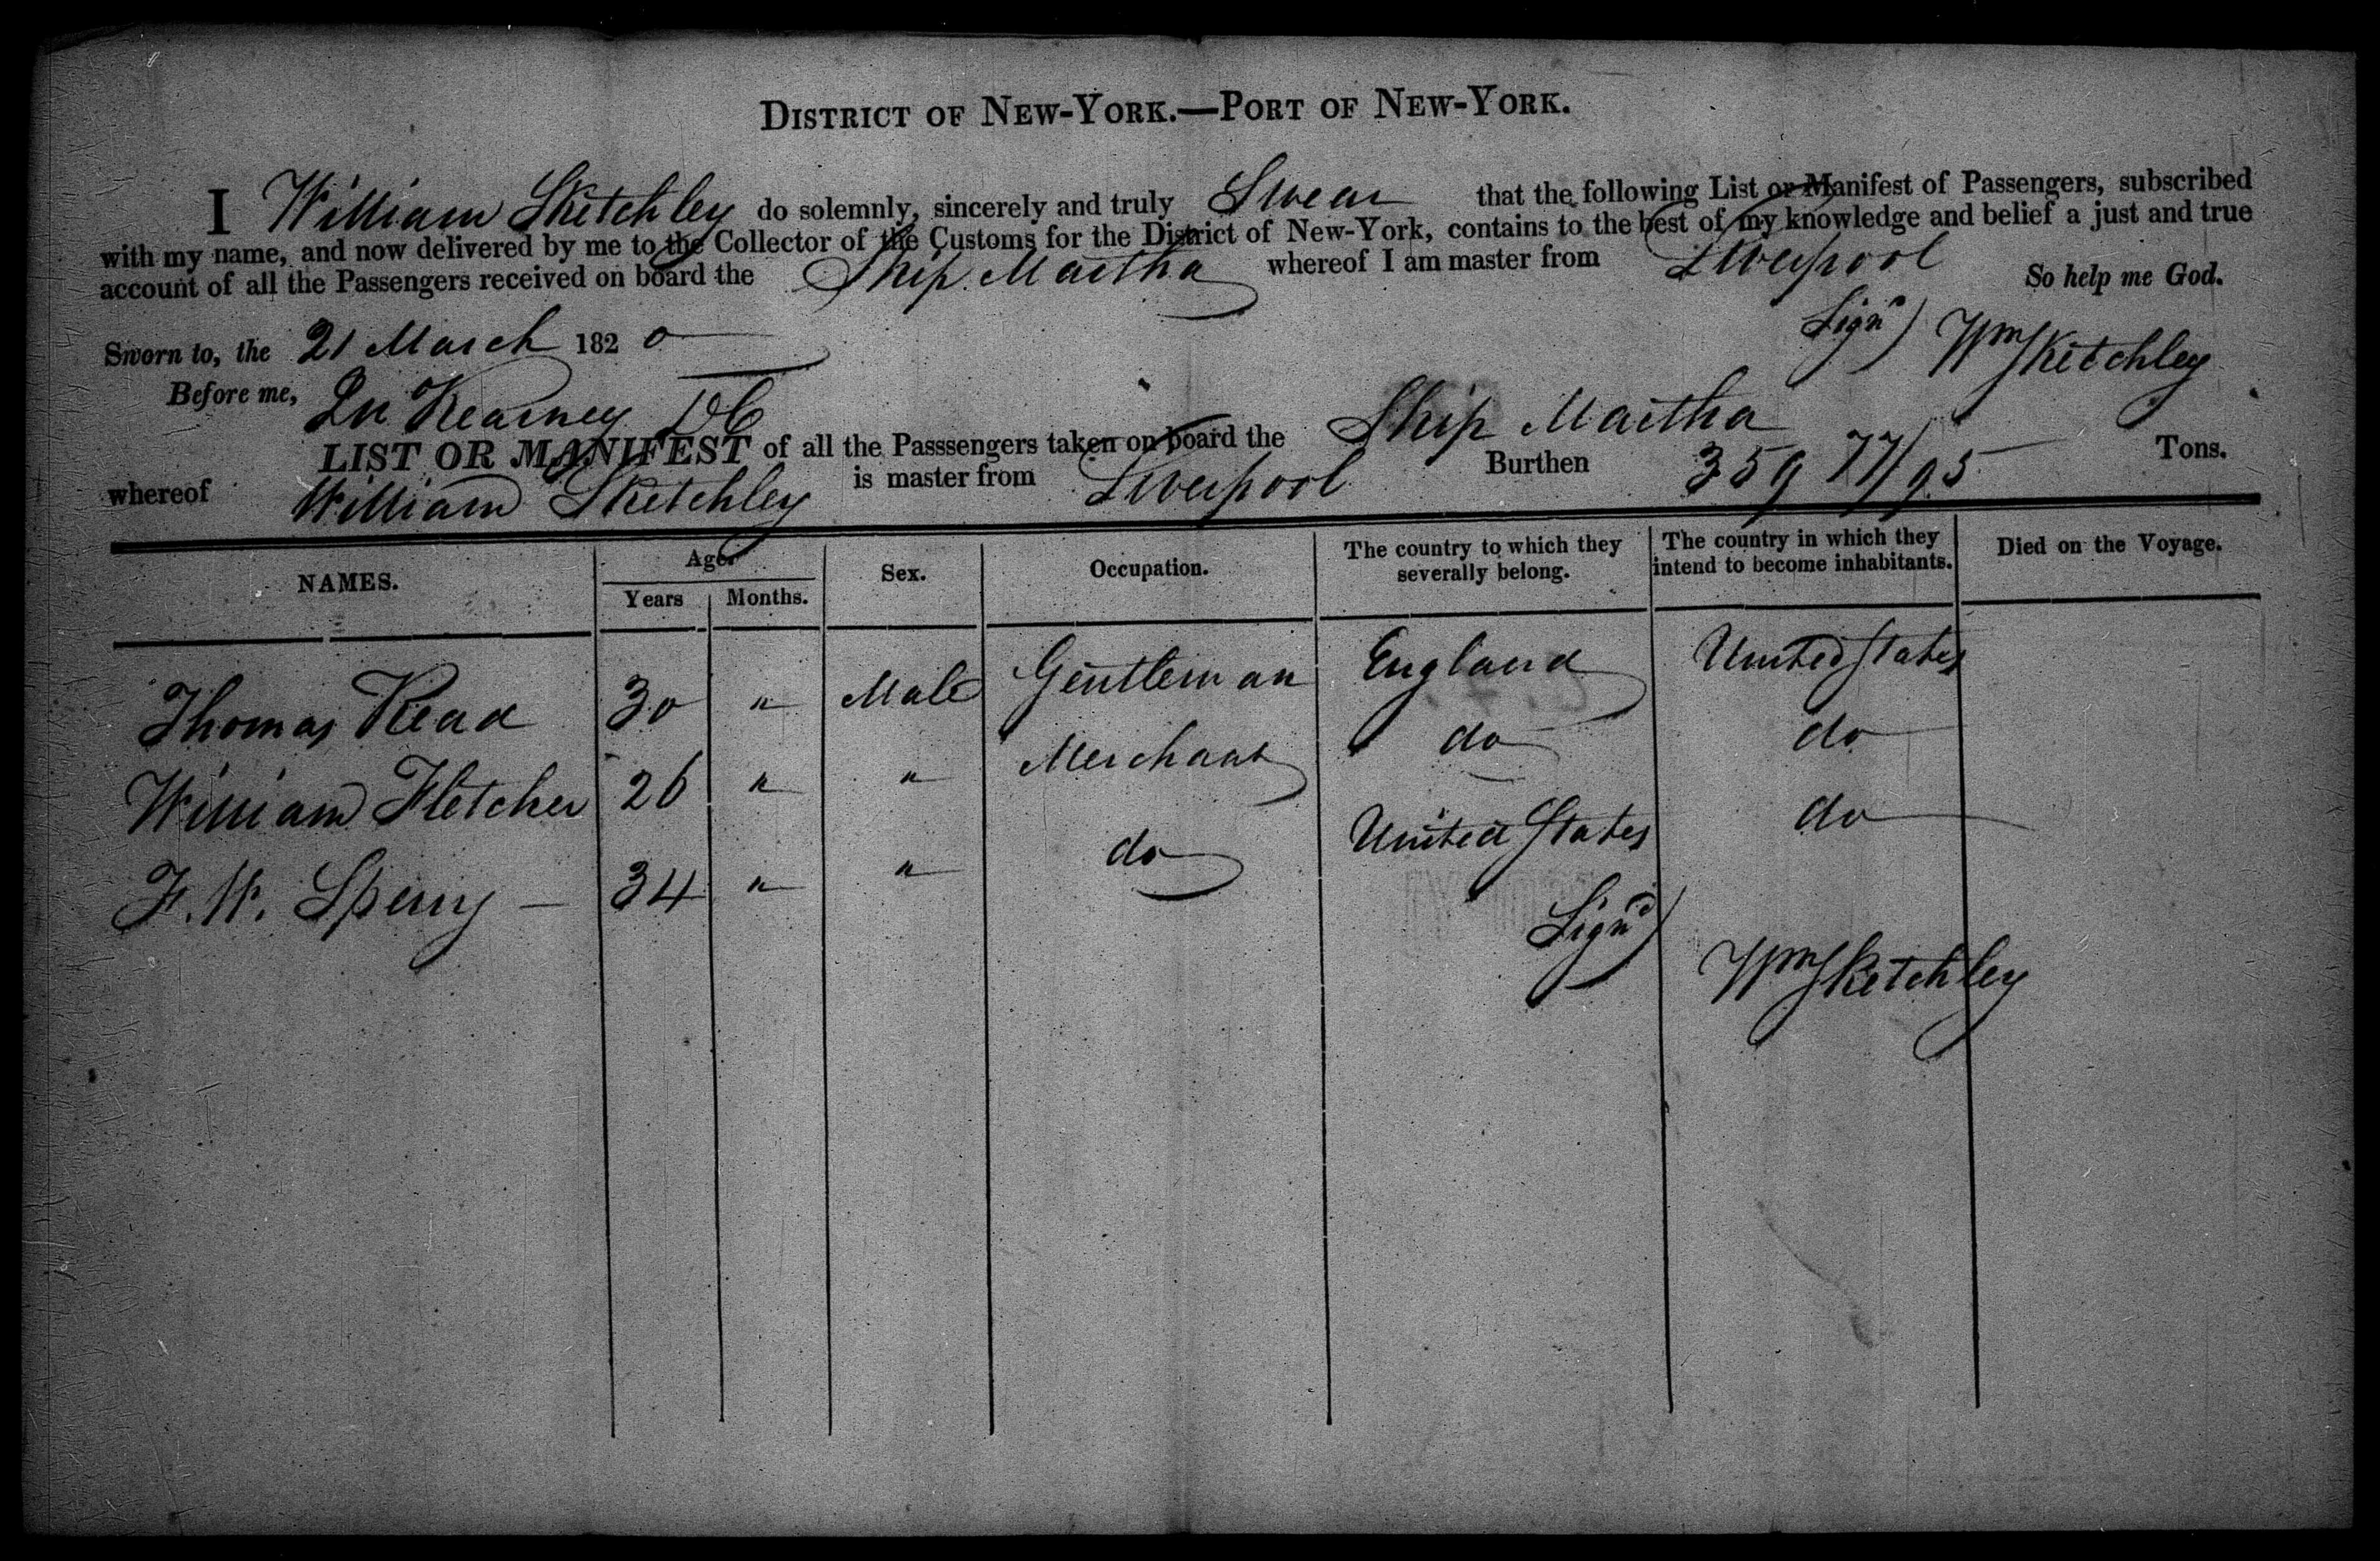 DISTRICT OF NEW-YORK.—PORT OF NEW-YORK.
I William Sketchley do solemnly, sincerely and truly Swear that the following List or Manifest of Passengers, subscribed
with my name, and now delivered by me to the Collector of the Customs for the District of New-York, contains to the best of my knowledge and belief a just and true
account of all the Passengers received on board the Ship Martha whereof I am master from Liverpool So help me God.
Sworn to, the 21 March 1820 Sign'd) Wm Sketchley
Before me, Kearney DC
LIST OR MANIFEST of all the Passsengers taken on board the Ship Martha
whereof William Sketchley is master from Liverpool Burthen 359 77/95 Tons.
NAMES. Age. Years Months. Sex. Occupation. The country to which they severally belong. The country in which they intend to become inhabitants. Died on the Voyage.
Thomas Read 30 " Male Gentleman England United States
William Fletcher 26 " " Merchant do do
F. W. Sperry — 34 " " do United States do
Sign'd) Wm Sketchley